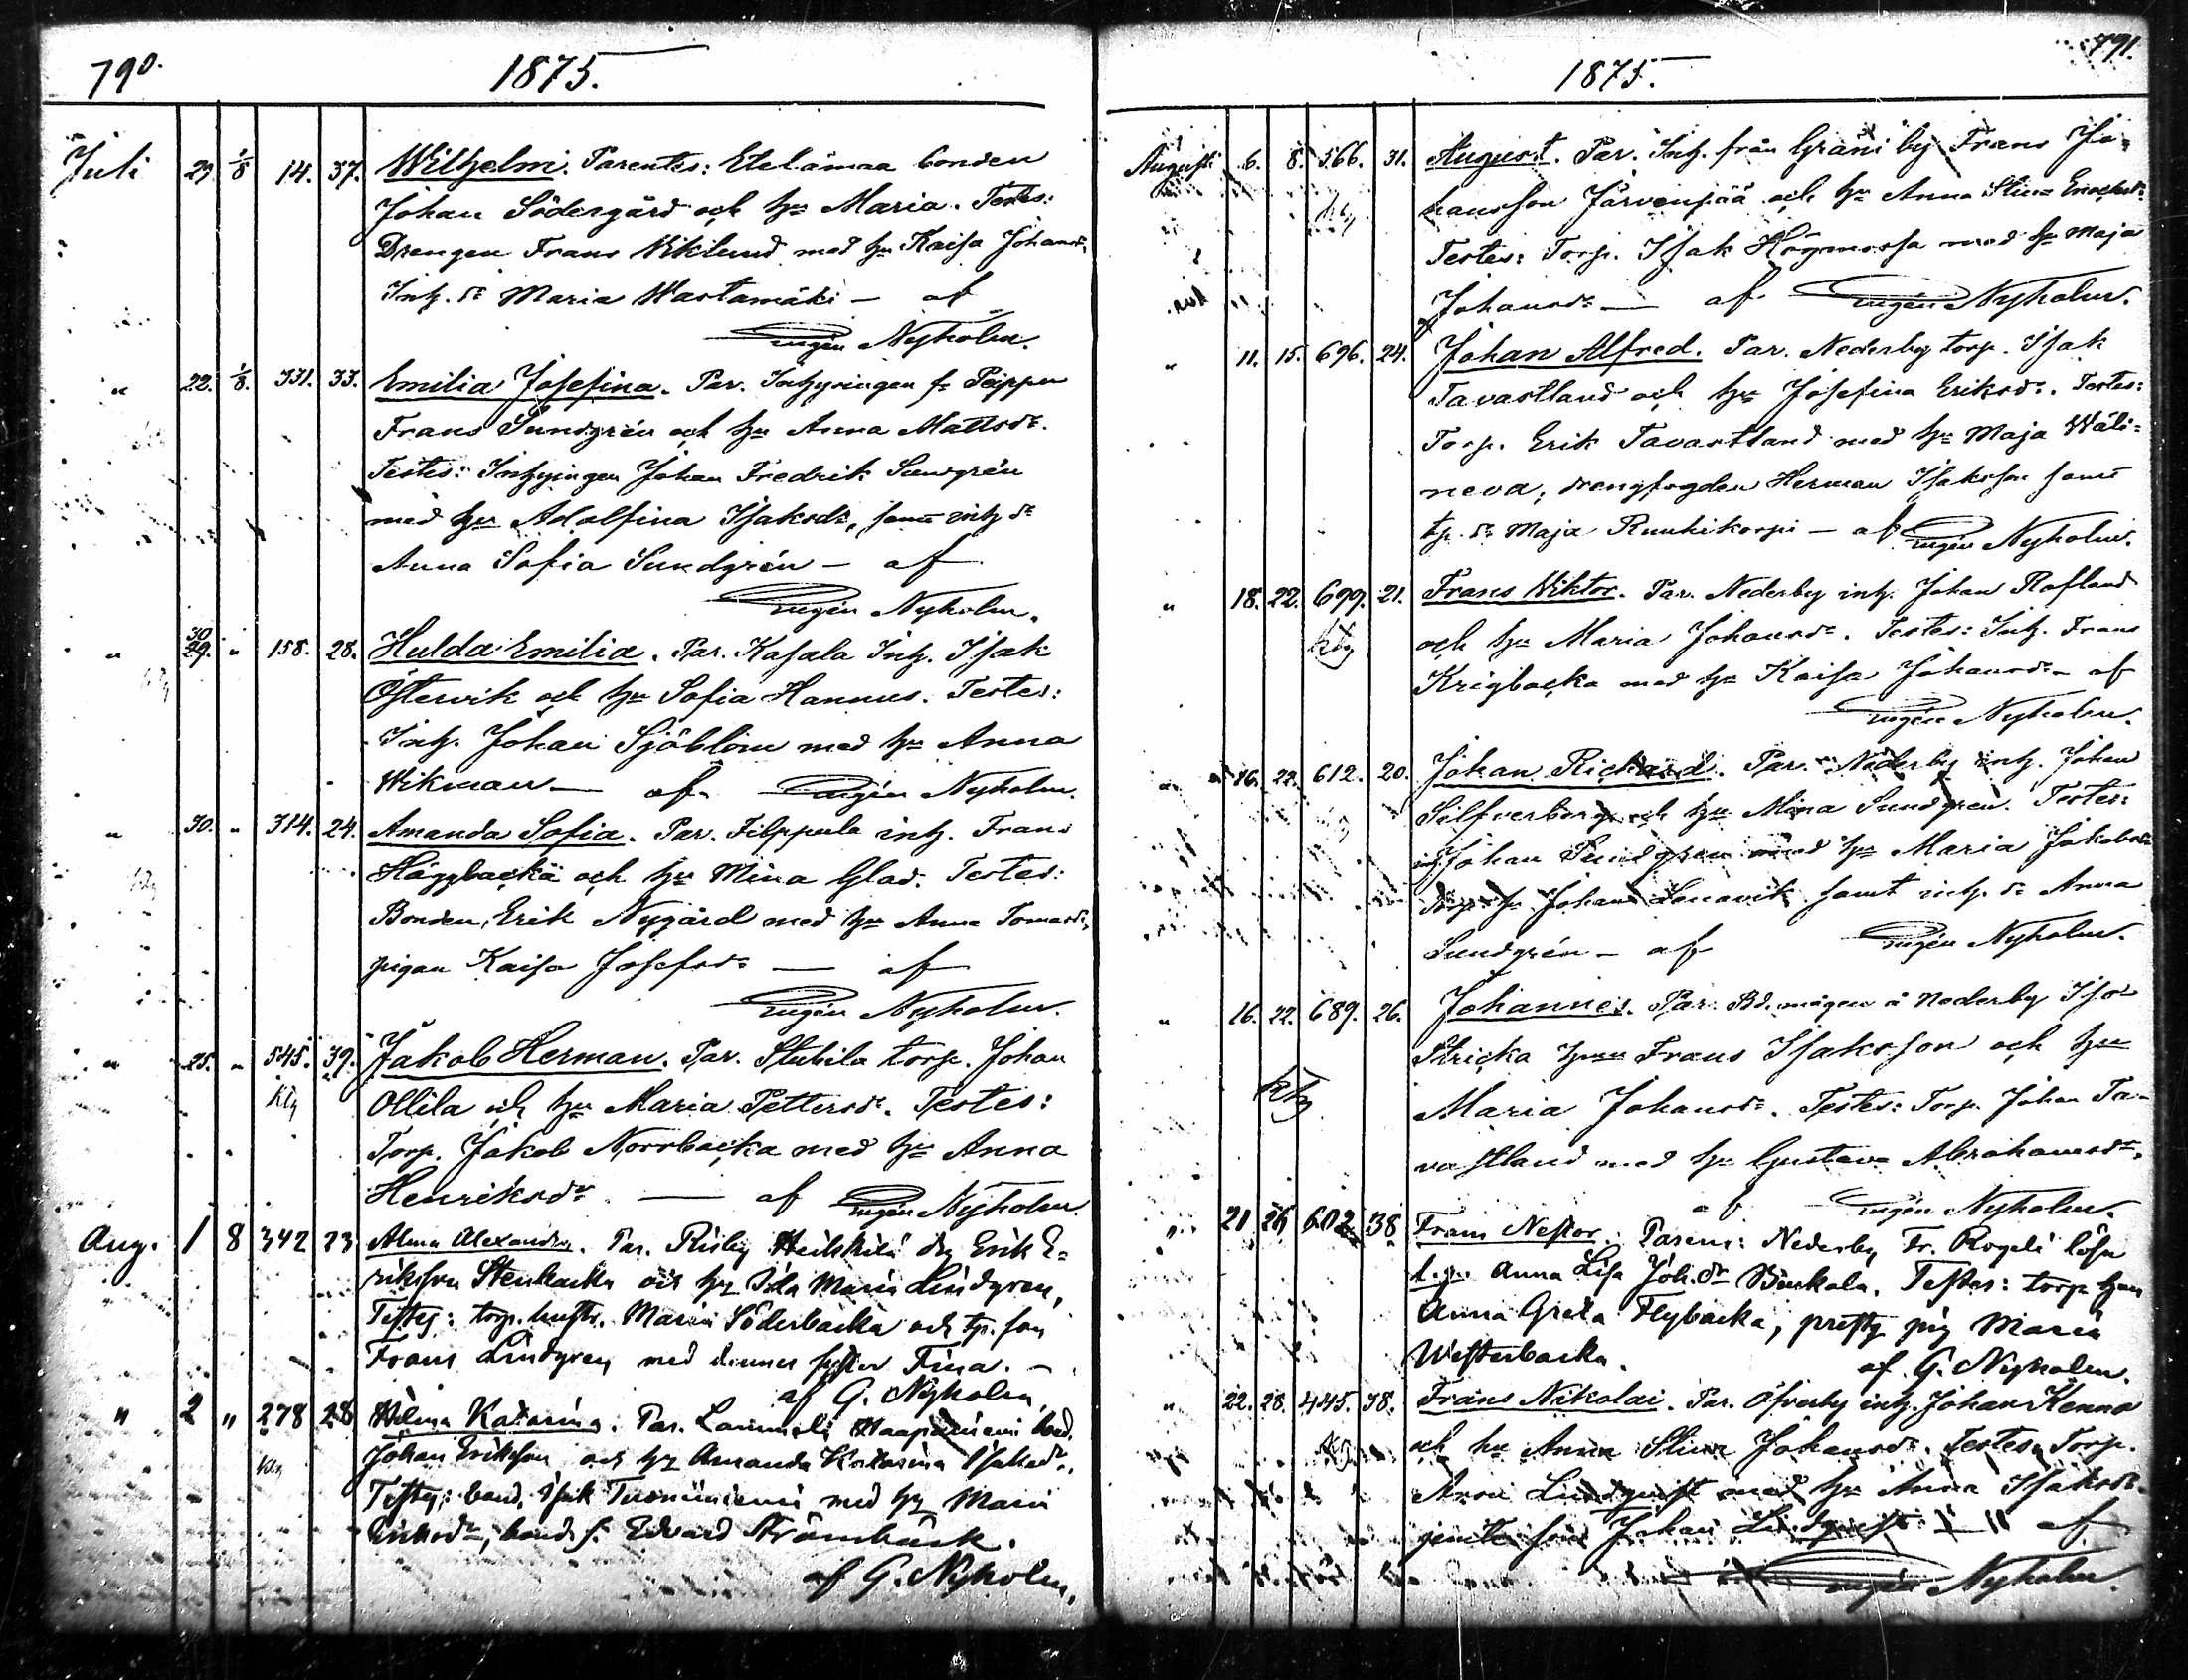 790.
1875.
Juli 29. 1/8 14. 37. Wilhelmi. Parentes: Etelämaa bonden
Johan Södergård och hu Maria. Testes:
Drengen Frans Wiklund med hu Kaisa Johansdr,
Inh. dr Maria Wastamäki — af
Eugén Nyholm.
" 22. 1/8. 331. 33. Emilia Josefina. Par. Inhysingen fr Peippu
Frans Sundgrén och hu Anna Mattsdr.
Testes: Inhysingen Johan Fredrik Sundgrén
med hu Adolfina Isaksdr, samt inh dr
Anna Sofia Sundgrén — af
Eugén Nyholm.
" 30 29. " 158. 28. Hulda Emilia. Par. Kasala Inh. Isak
Östervik och hu Sofia Hannus. Testes:
Inh. Johan Sjöblom med hu Anna
Wikman — af Eugén Nyholm.
" 30. " 314. 24. Amanda Sofia. Par. Filppula inh. Frans
Häggbacka och hu Mina Glad. Testes:
Bonden Erik Nygård med hu Anna Tomasdr,
pigan Kaisa Josefsdr — af
Eugén Nyholm.
" 25. " 545. 39. Jakob Herman. Par. Stubila torp. Johan
Ollila och hu Maria Pettersdr. Testes:
Torp. Jakob Norrbacka med hu Anna
Henriksdr. — af Eugén Nyholm
Aug. 1 8 342 23 Alma Alexandra. Par. Risby Heikkilä dr Erik E-
riksson Stenbacka och hu Ida Maria Lindgren,
Testes: torp. hustr. Maria Söderbacka och tp. son
Frans Lindgren med dennes syster Fina. —
af G. Nyholm,
" 2 " 278 28 Wilma Katarina. Par. Lammela Haapaniemi bond.
Johan Eriksson och hu Amanda Katarina Isaksdr.
Testes: bond. Isak Tuominiemi med hu Maria
Eriksdr, bond. s. Edvard Strömbäck.
af G. Nyholm,
791.
1875.
Augusti 6. 8. 566. 31. August. Par. Inh. från Gräni by Frans Jo-
hansson Järvenpää och hu Anna Stina Enochsdr.
Testes: Torp. Isak Högmossa med hu Maja
Johansdr — af Eugén Nyholm.
" 11. 15. 696. 24. Johan Alfred. Par. Nederby torp. Isak
Tavastland och hu Josefina Eriksdr. Testes:
Torp. Erik Tavastland med hu Maja Wäli-
neva, drengfogden Herman Isaksson samt
tp. dr Maja Ruuhikorpi — af Eugén Nyholm.
" 18. 22. 699. 21. Frans Wiktor. Par. Nederby inh. Johan Rosland
och hu Maria Johansdr. Testes: Inh. Frans
Krigbacka med hu Kaisa Johansdr — af
Eugén Nyholm.
" 16. 22. 612. 20. Johan Rickard. Par. Nederby inh. Johan
Silfverberg och hu Mina Sundgren. Testes:
inh. Johan Sundgren med hu Maria Jakobsdr
Johan samt inh. dr Anna
Sundgrén — af Eugén Nyholm.
" 16. 22. 689. 26. Johannes. Par. Bd. mågen å Nederby Iso
Stricka Frans Isaksson och hu
Maria Johansdr. Testes: Torp. Johan Ta-
vastland med hu Gustava Abrahamsdr,
af Eugén Nyholm.
" 21 26 602 38 Frans Nestor. Parens: Nederby Fr. Rogeli lösa
Anna Lisa Joh.dr Testes: torp. hu
Anna Greta Flybacka, prestg. pig Maria
Westerbacka. af G. Nyholm.
" 22. 28. 445. 38. Frans Nikolai. Par. Öfverby inh. Johan Kenno
och hu Anna Stina Johansdr. Testes: Torp.
Aron Lindqvist med hu Anna Isaksdr.
jemte son Johan Lindqvist — af
Eugén Nyholm.